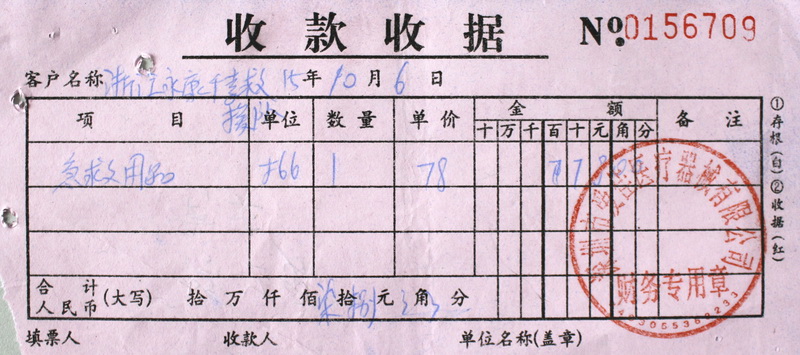 收款收据 No.0156709
客户名称 浙江永康千喜救援队 15年10月6日
项目 单位 数量 单价 金额 备注
十万千百十元角分
急救用品 1 78 ¥7800
合计人民币(大写) 拾万仟佰柒拾捌元角分
填票人 收款人 单位名称(盖章)
①存根(白)②收据(红)
医疗器械有限公司
财务专用章